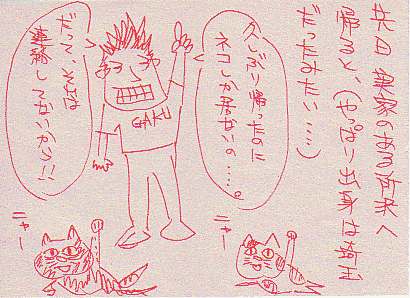 先日 実家のある所沢へ
帰ると、(やっぱり出身は埼玉
だったすたい……)
久しぶり帰ったのに
ネコしか居ないの…。
だって、そんな
連絡してないから!!
GAKU
ニャー
ニャー